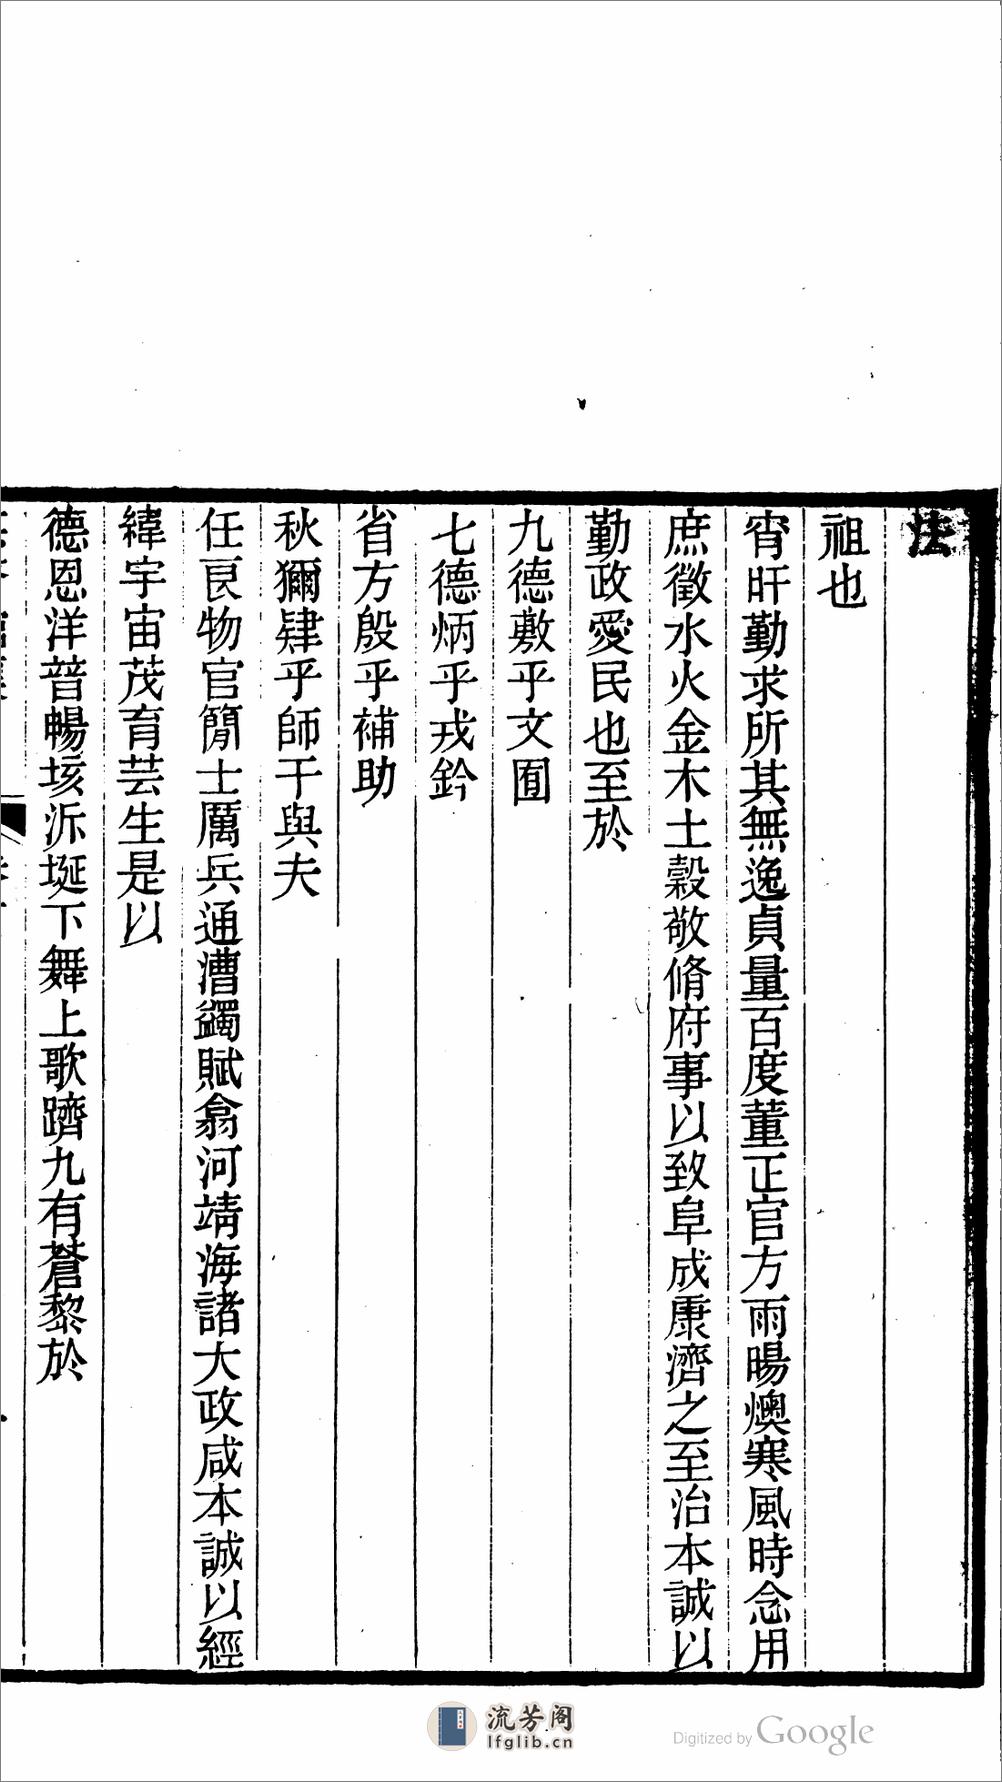 法
祖也
宵旰勤求所其無逸貞量百度董正官方雨暘燠寒風時念用
庶徵水火金木土穀敬脩府事以致阜成康濟之至治本誠以
勤政愛民也至於
九德敷乎文囿
七德炳乎戎鈐
省方殷乎補助
秋獮肄乎師干與夫
任良物官簡士厲兵通漕蠲賦翕河靖海諸大政咸本誠以經
緯宇宙茂育芸生是以
德恩洋暜暢垓泝埏下舞上歌躋九有蒼黎於
流芳阁
lfglib.cn
Digitized by Google